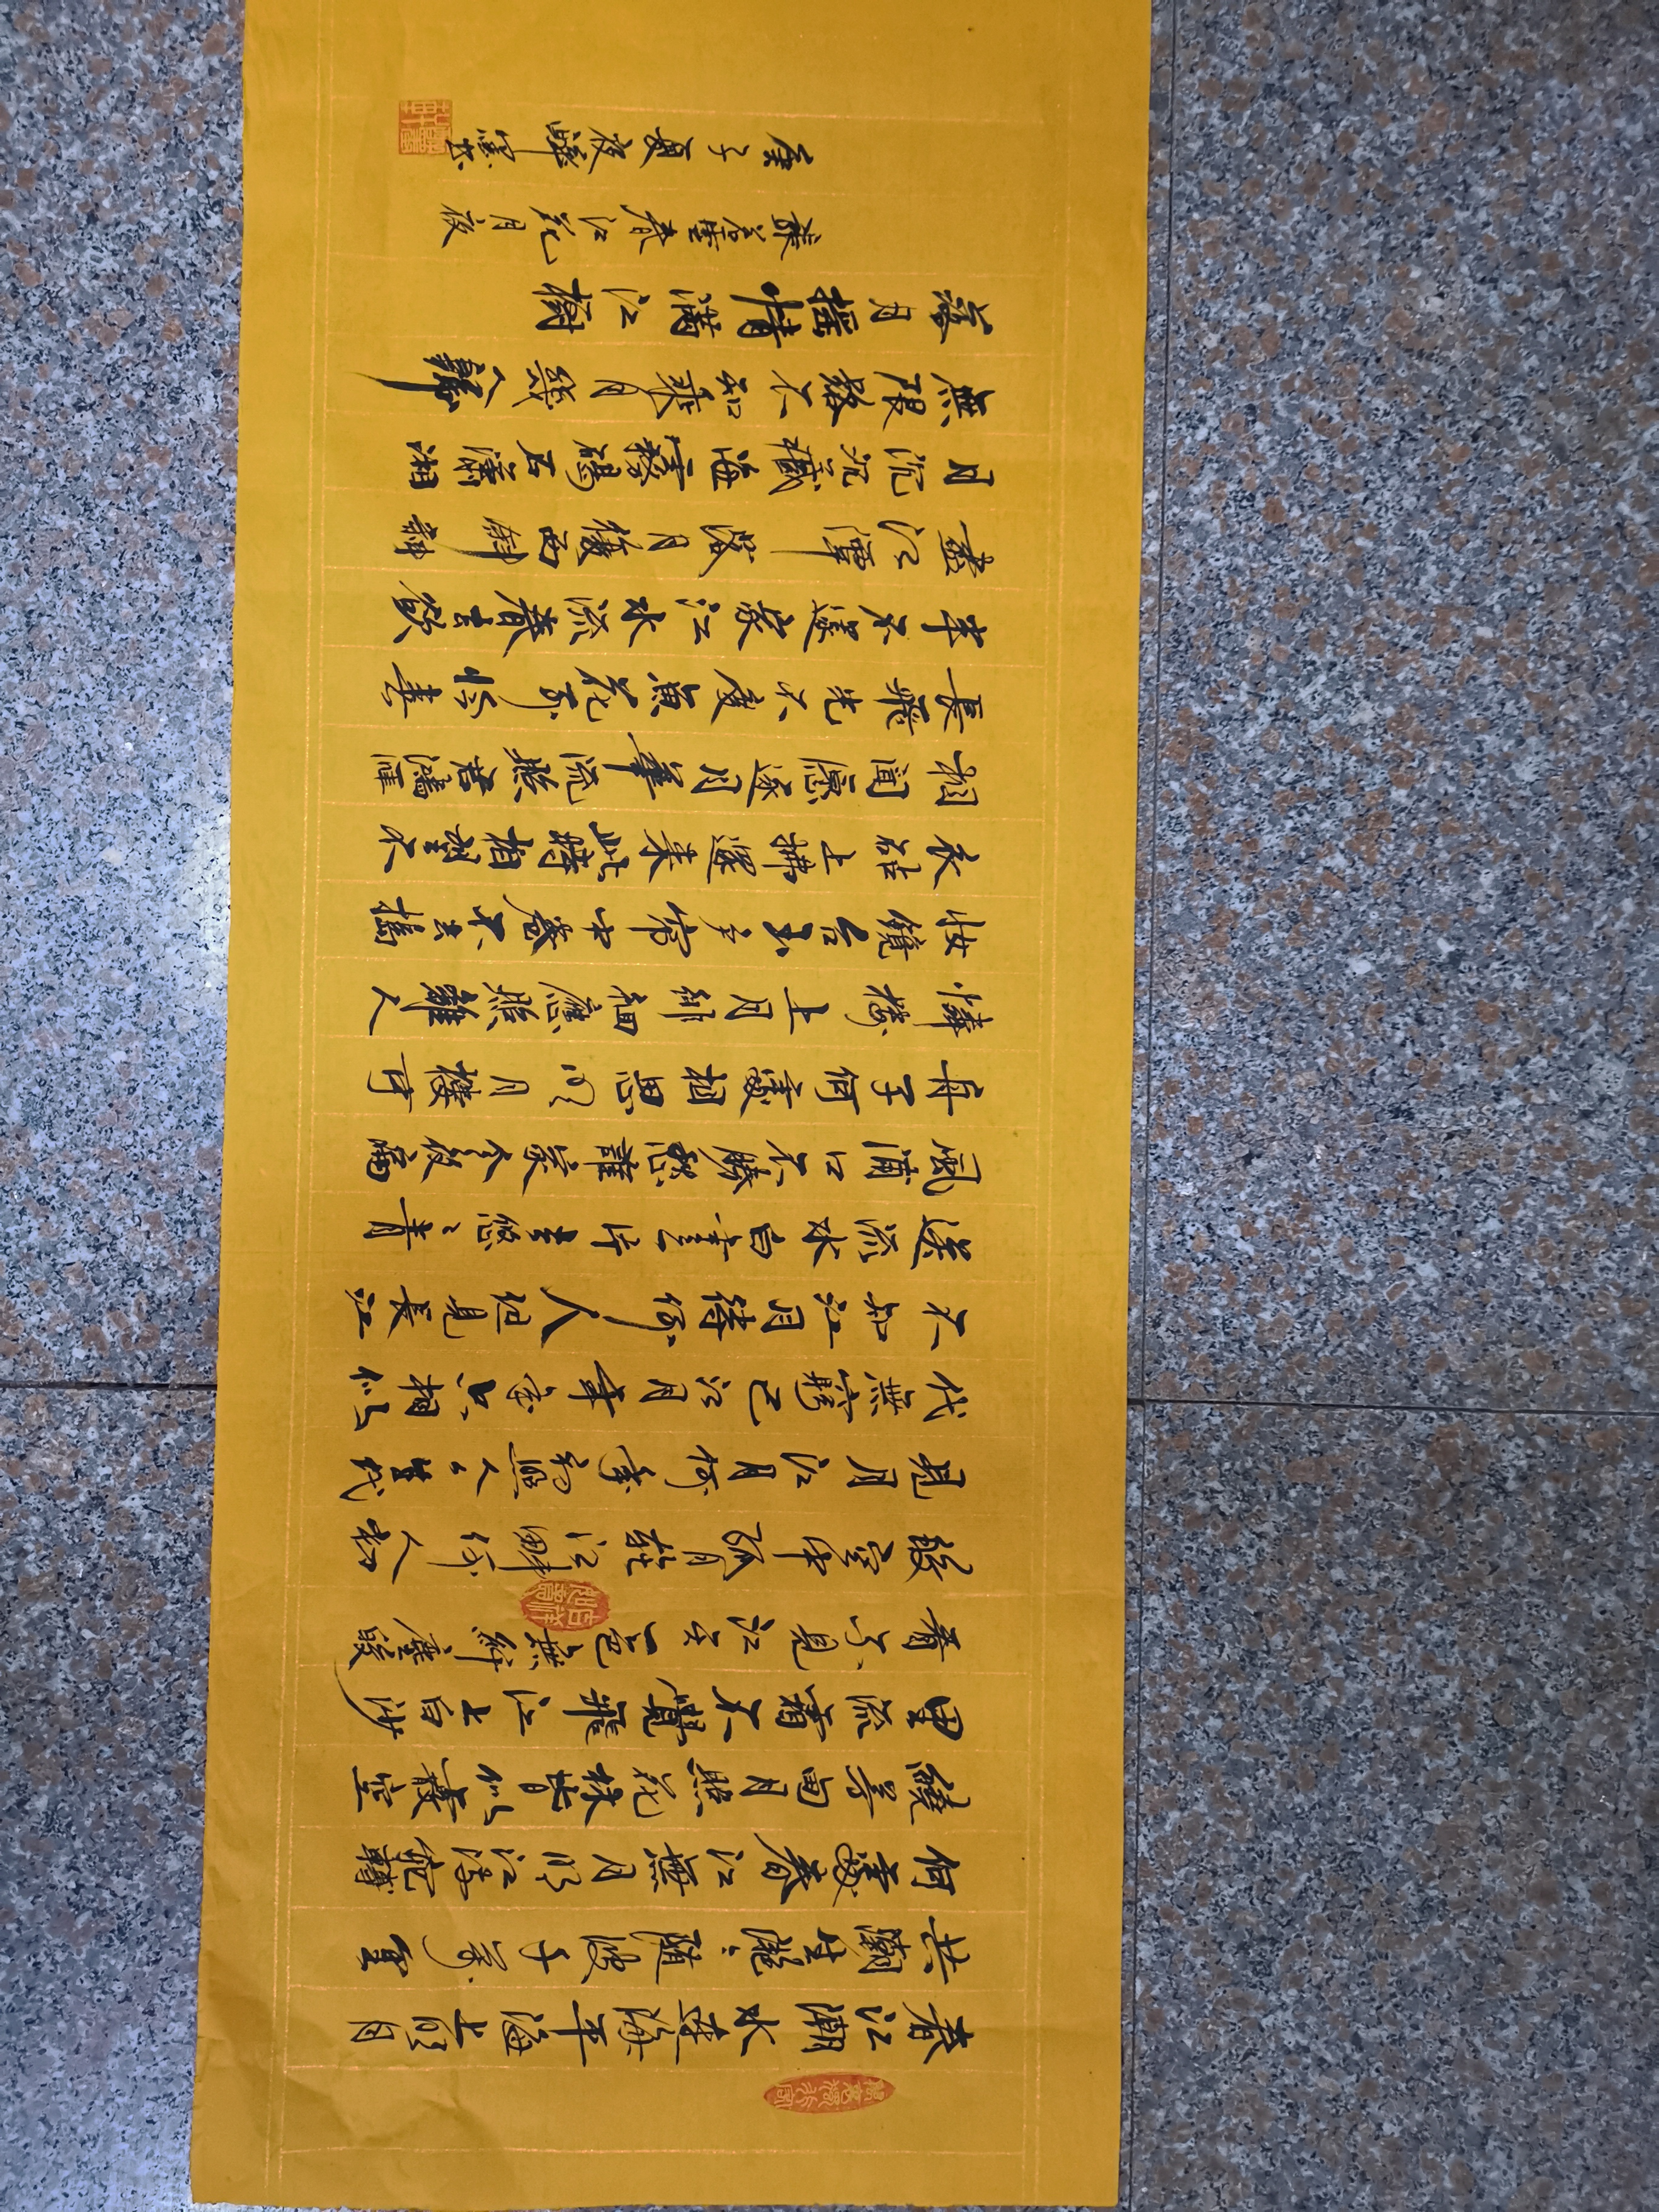 春江潮水連海平海上明月
共潮生灧〻隨波千萬里
何處春江無月明江流宛轉
繞芳甸月照花林皆似霰空
里流霜不覺飛江上白沙
看不見江天一色無纤塵皎
皎空中孤月輪江畔何人初
見月江月何年初照人〻生代
代無窮已江月年〻只相似
不知江月待何人但見長江
送流水白雲一片去悠〻青
楓浦口不勝愁誰家今夜扁
舟子何處相思明月樓可
憐樓上月徘徊應照離人
妝鏡台玉戶帘中卷不去搗
衣砧上拂還来此時相望不
相聞願逐月華流照君鴻雁
長飛光不度魚花可憐春
半不還家江水流春去欲
盡江潭落月復西斜斜
月沉沉藏海霧碣石瀟湘
無限路不知乘月幾人歸
落月摇情滿江樹
張若虛春江花月夜
庚子夏夜